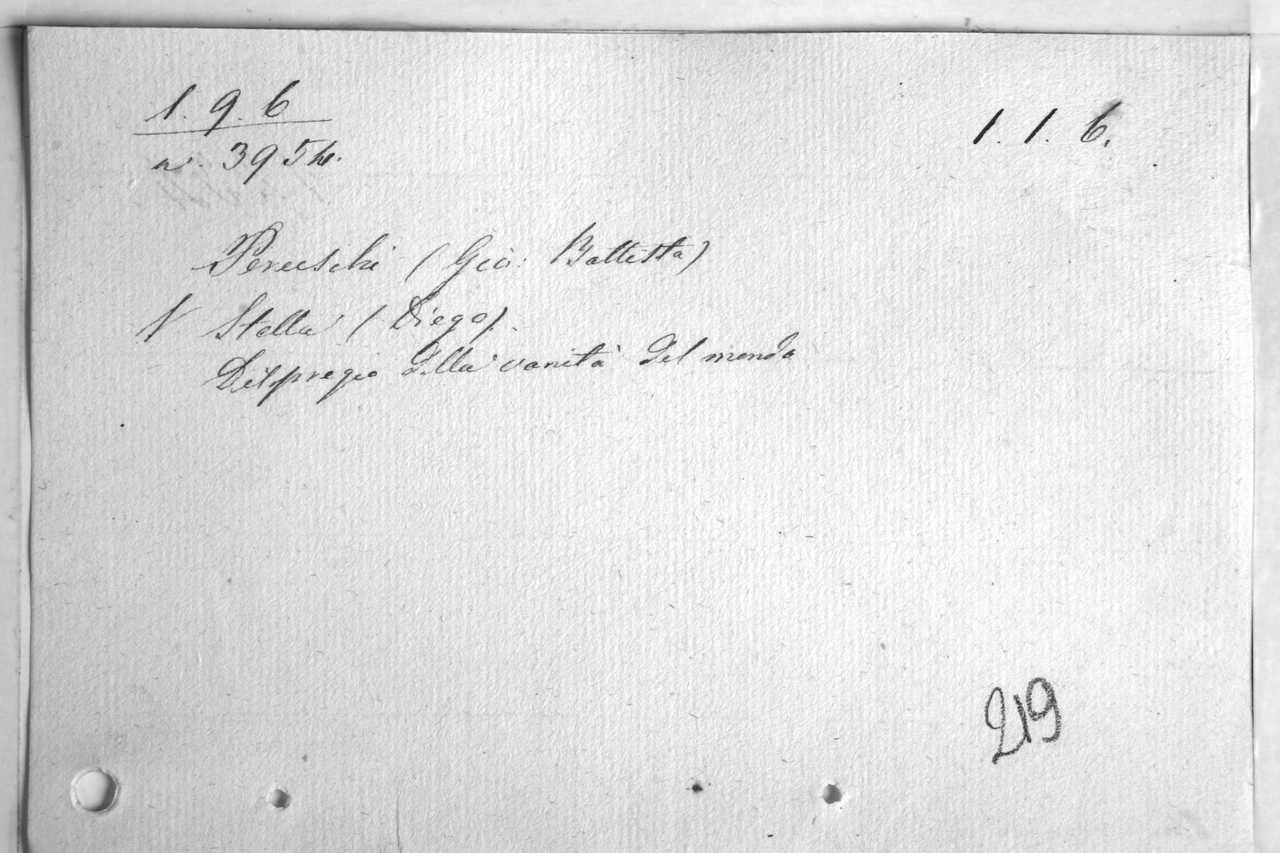 1. 9. 6
1. 1. 6.
n. 3954.
Peruschi (Gio: Battista)
V Stella (Diego).
Dispregio della vanità del mondo
219